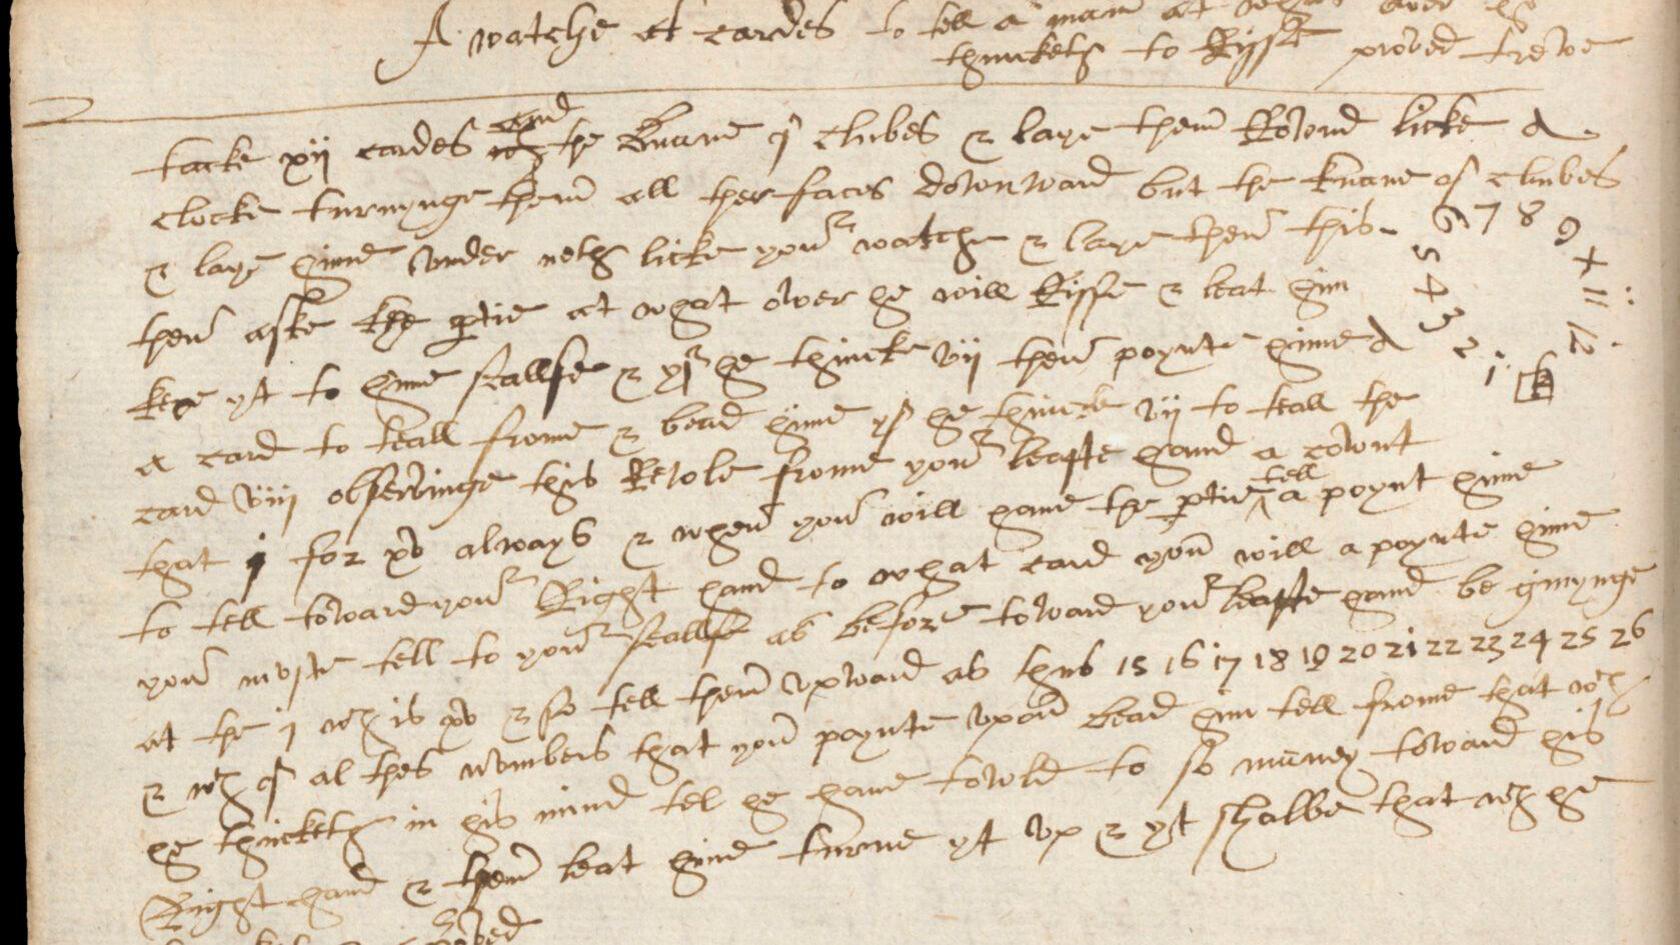 A watche at cardes to tell a man at what ower he
thincketh to Rysse proved trewe
tacke xij cardes and the knave of clubes & laye them Rownd licke a
clocke turnynge them all ther faces downward but the knave of clubes
& laye hime under neth licke your watche & laye them this
then aske the ptie at what ower he will Risse & leat him
kepe yt to hime sealfse & yf he thincke vij then poynte hime a
a card to teall frome & bead hime yf he thincke vij to teall the
card viij observinge this Rewle frome your leafte hand a cownt
that j for xv always & when you will have the ptie tell a poynt hime
to tell toward your Right hand to what card you will a poynte hime
you moste tell to your sealfe as before toward your leafte hand be ginynge
at the j wch is xv & so tell them upward as thus 15 16 17 18 19 20 21 22 23 24 25 26
& wch of al thes nombers that you poynte upon bead him tell frome that wch
he thincketh in his mind tel he have towld to so maney toward his
Right hand & then leat hime turne yt up & yt shalbe that wch he
proved
6 7 8 9 + 11 12
5 4 3 2 1
k